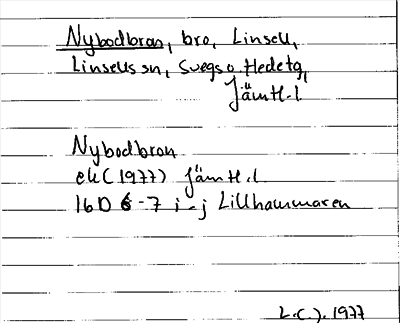 Nybodbron, bro, Linsell,
Linsells sn, Svegs o. Hede tg,
Jämtl. l.
Nybodbron
ek (1977) Jämtl. l
16D 6-7 i-j Lillhammaren
L.C.J. 1977